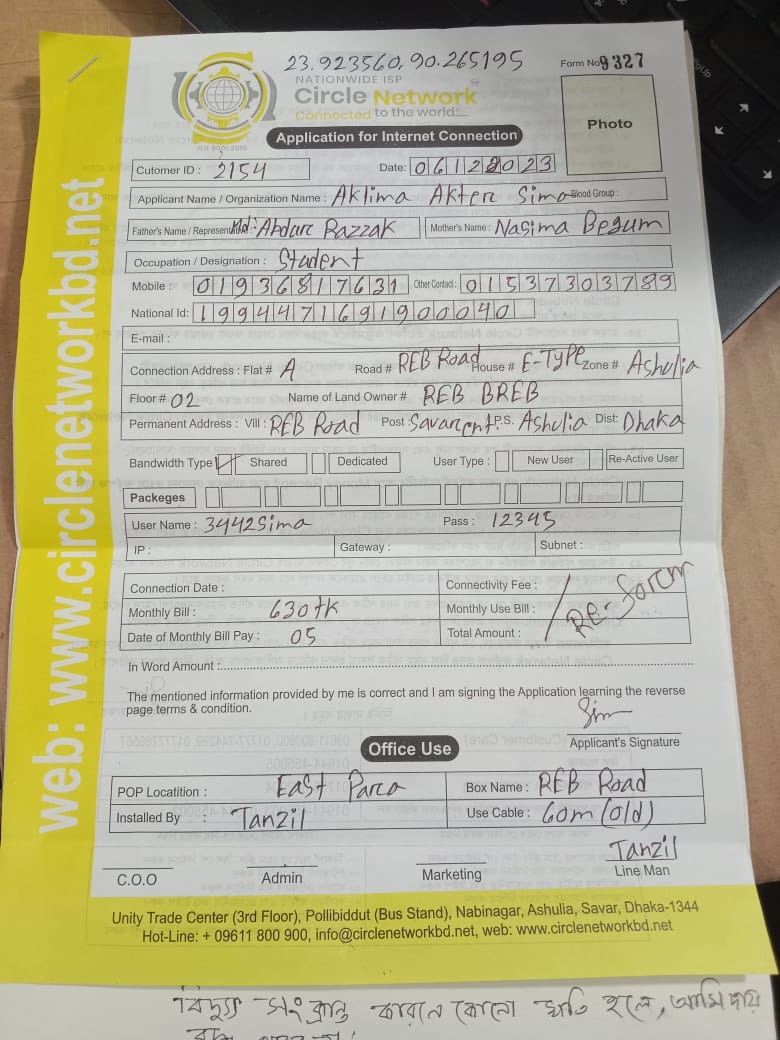 23.923560, 90.265195
Form No 9327
NATIONWIDE ISP
Circle Network
Connected to the world.....
ISO 9001:2015
Photo
Application for Internet Connection
Cutomer ID : 2154 Date: 06122023
Applicant Name / Organization Name : Aklima Akter Sima Blood Group :
Father's Name / Represent Md: Abdur Razzak Mother's Name : Nasima Begum
Occupation / Designation : Student
Mobile : 01936817631 Other Contact : 01537303789
National Id: 19944716919000040
E-mail :
Connection Address : Flat # A Road # REB Road House # E-Type Zone # Ashulia
Floor # 02 Name of Land Owner # REB BREB
Permanent Address : Vill : REB Road Post : Savarcent. P.S. Ashulia Dist: Dhaka
Bandwidth Type Shared Dedicated User Type : New User Re-Active User
Packeges
User Name : 3442Sima Pass : 12345
IP : Gateway : Subnet :
Connection Date : Connectivity Fee :
Monthly Bill : 630tk Monthly Use Bill : Re-Form
Date of Monthly Bill Pay : 05 Total Amount :
In Word Amount :
The mentioned information provided by me is correct and I am signing the Application learning the reverse
page terms & condition.
Sim
Applicant's Signature
Office Use
POP Locatition : East Para Box Name : REB Road
Installed By : Tanzil Use Cable : 60m (old)
Tanzil
C.O.O Admin Marketing Line Man
Unity Trade Center (3rd Floor), Pollibiddut (Bus Stand), Nabinagar, Ashulia, Savar, Dhaka-1344
Hot-Line: + 09611 800 900, info@circlenetworkbd.net, web: www.circlenetworkbd.net
web: www.circlenetworkbd.net
বিদ্যুৎ সংক্রান্ত কারনে কোনো ক্ষতি হলে, আমি দায়